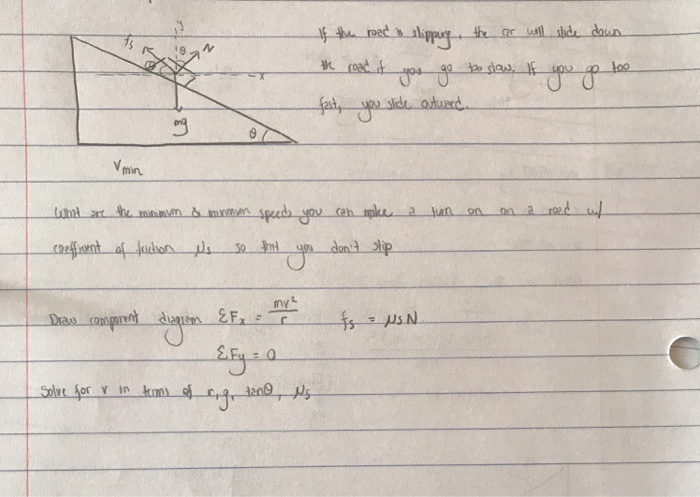 y
fs
θ
N
If the road is slippery, the car will slide down
θ
x
the road if you go too slow. If you go too
fast, you slide outward.
mg
θ
Vmin
What are the minimum & maximum speeds you can make a turn on on a road w/
coefficient of friction μs so that you don't slip
Draw component diagram ΣFx = mv²/r fs = μsN
ΣFy = 0
Solve for v in terms of r, g, tanθ, μs